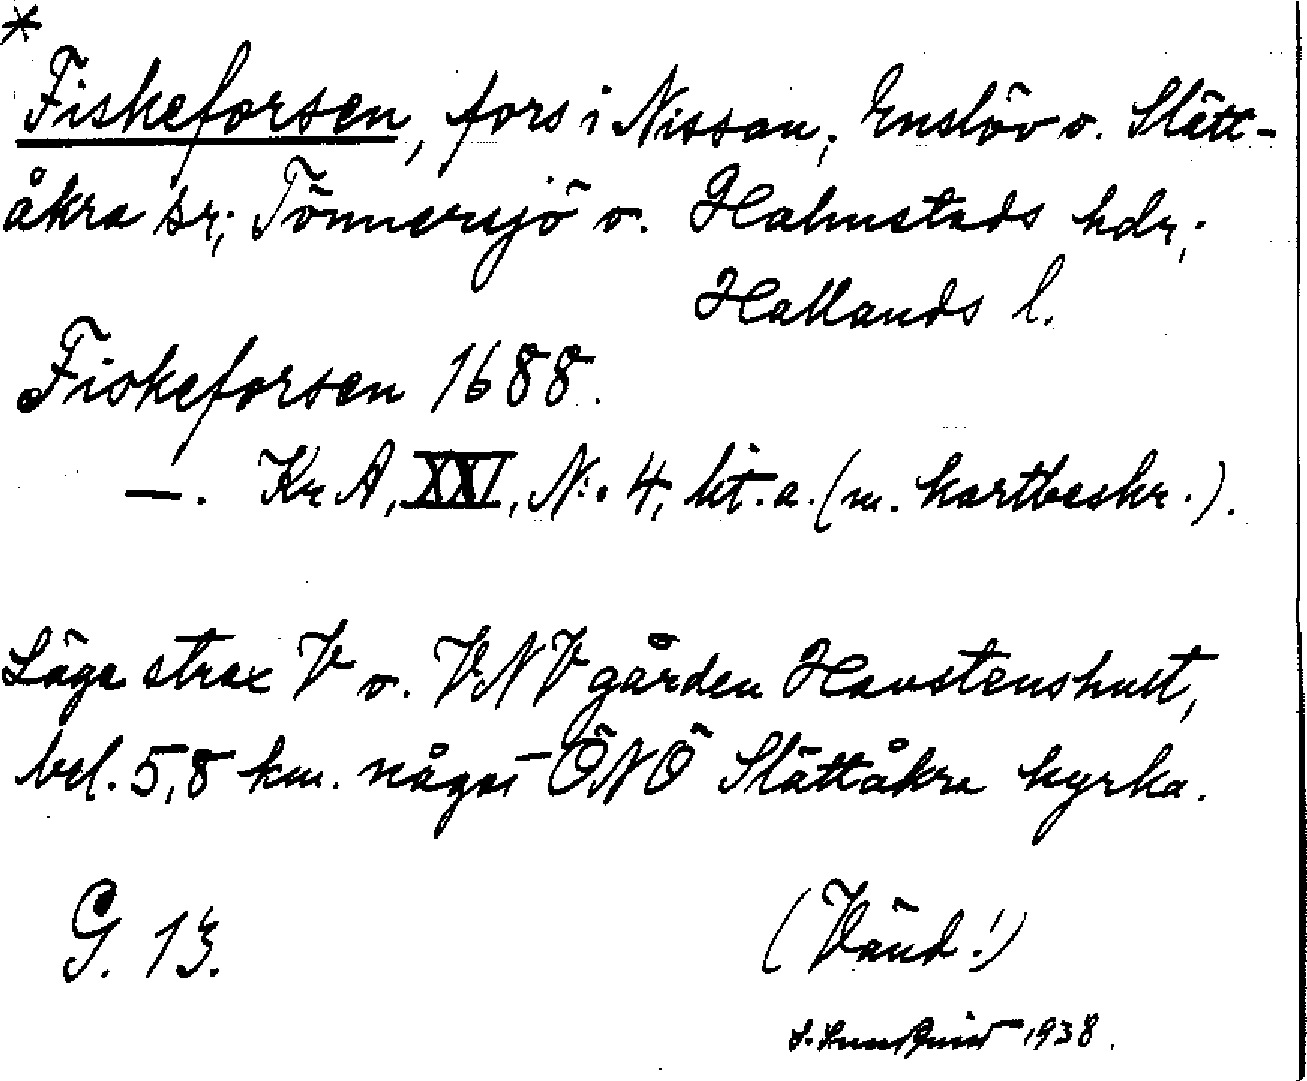 *
Fiskeforsen, fors i Nissan; Enslöv o. Slätt-
åkra sr; Tönnersjö o. Halmstads hdr;
Hallands l.
Fiskeforsen 1688.
—. Kr A, XXI, N:o 4, lit. a. (m. kartbeskr.).
Läge strax V o. VNV gården Havstenshult,
bel. 5,8 km. något ÖNÖ Slättåkra kyrka.
G. 13.
(Vänd!)
1938.